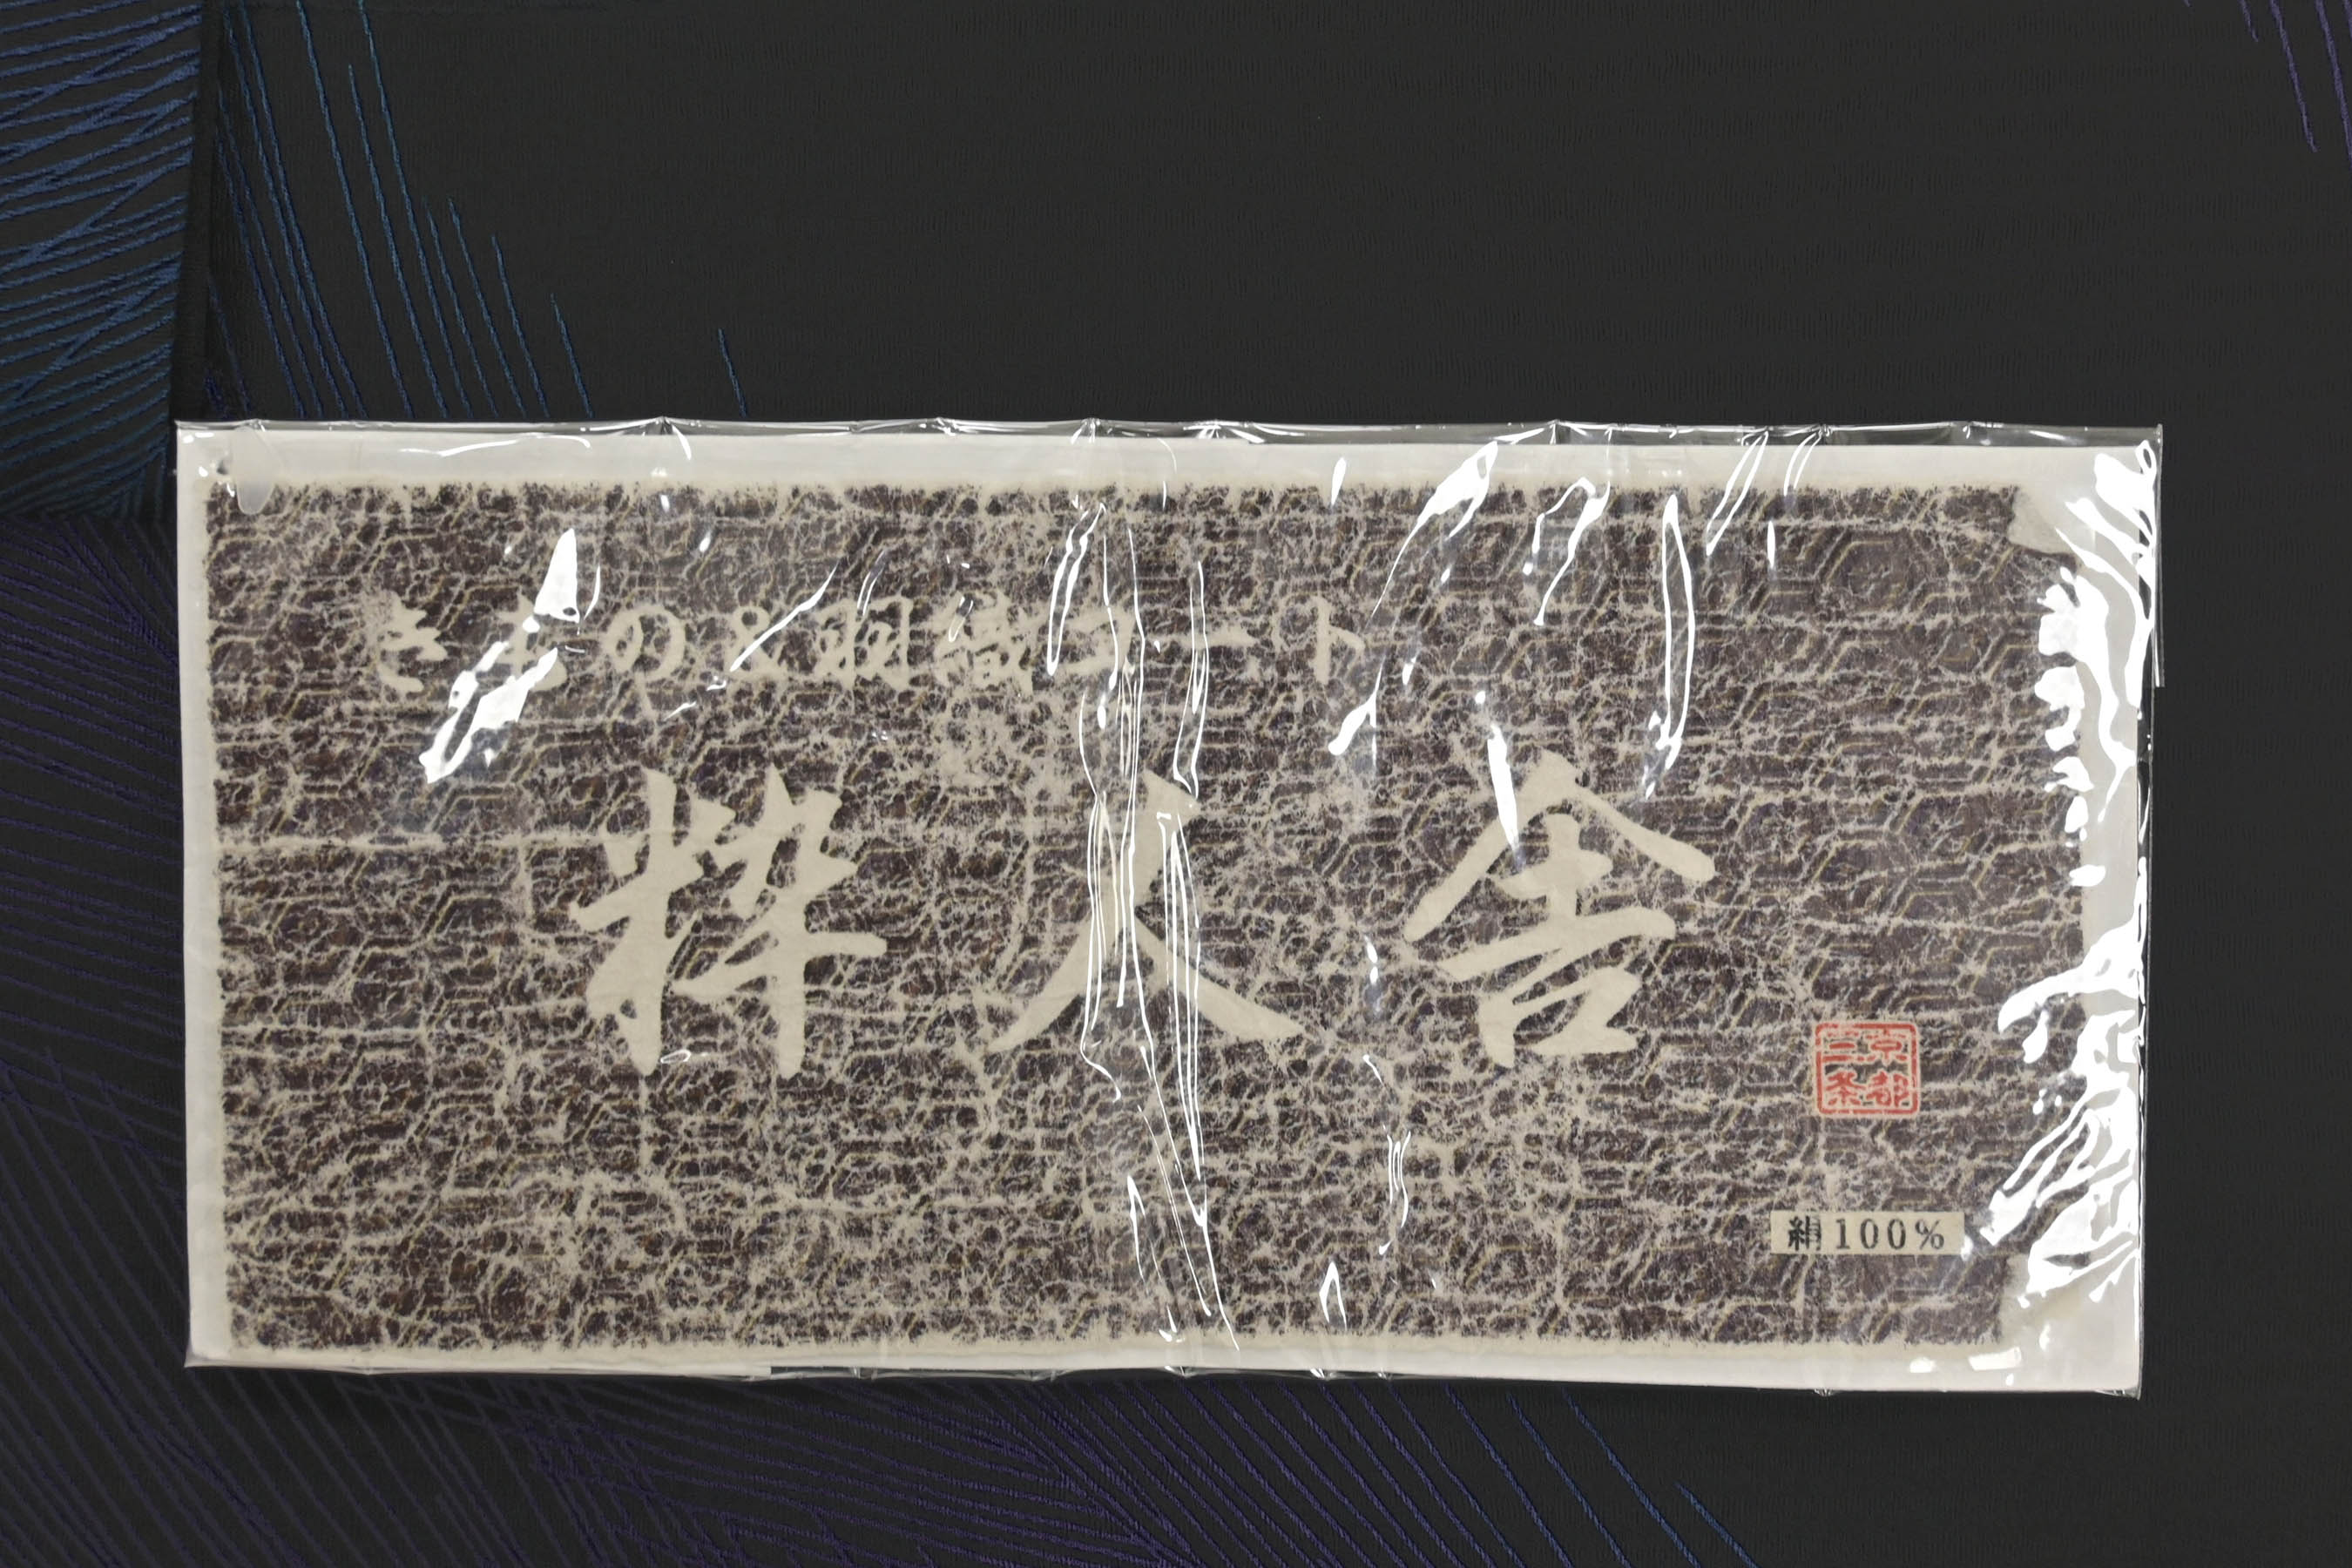 きもの&羽織コート
粋人舎
京都
三条
絹100%